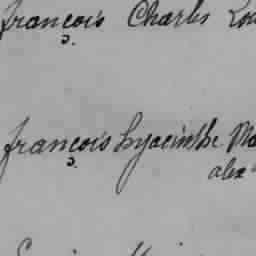 françois Charles
françois hyacinthe
alex